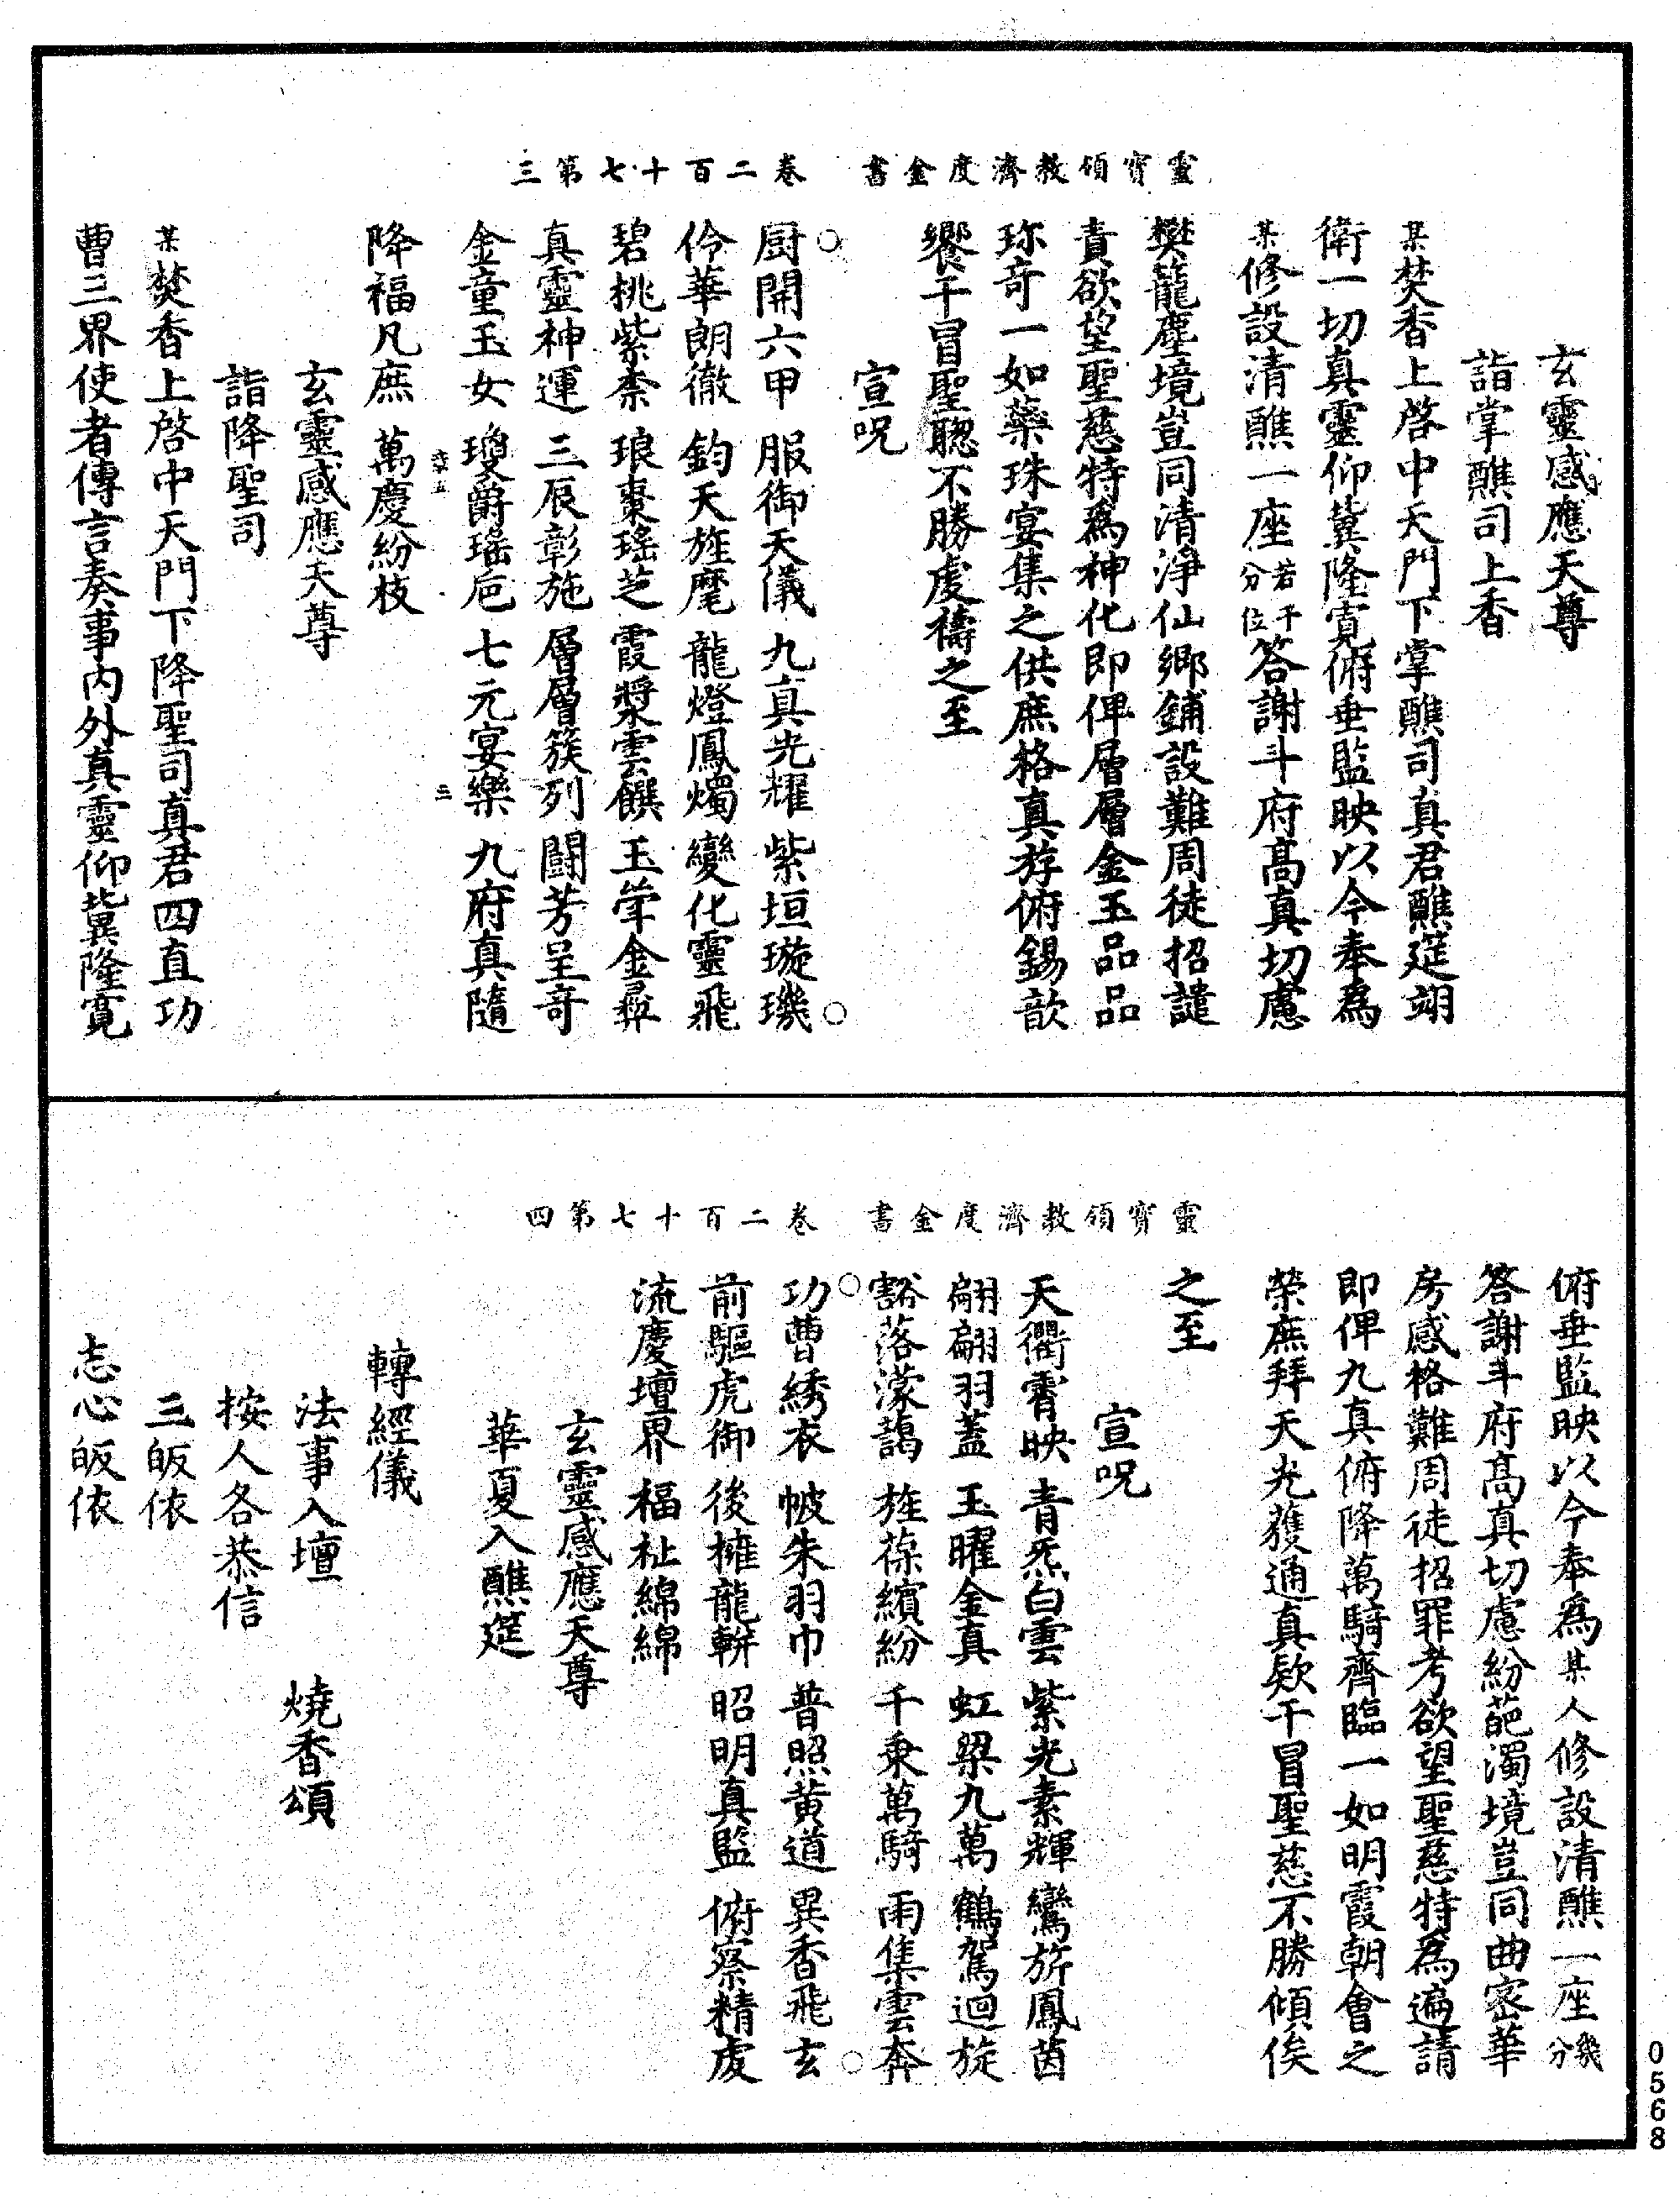 靈寶領教濟度金書　卷二百十七第三
玄靈感應天尊
詣掌醮司上香
某焚香上啓中天門下掌醮司真君醮筵翊
衛一切真靈仰冀隆寬俯垂監映以今奉爲
某修設清醮一座若干分位答謝斗府高真切慮
樊籠塵境豈同清淨仙鄉鋪設難周徒招譴
責欲望聖慈特爲神化即俾層層金玉品品
珎奇一如蘂珠宴集之供庶格真游俯錫歆
饗干冒聖聦不勝虔禱之至
宣呪
厨開六甲　服御天儀　九真光耀　紫垣璇璣
伶華朗徹　鈞天旌麾　龍燈鳳燭　變化靈飛
碧桃紫柰　琅棗瑤芝　霞漿雲饌　玉斝金彛
真靈神運　三辰彰施　層層簇列　鬪芳呈奇
金童玉女　瓊爵瑤巵　七元宴樂　九府真隨
降福凡庶　萬慶紛枝
玄靈感應天尊
詣降聖司
某焚香上啓中天門下降聖司真君四直功
曹三界使者傳言奏事内外真靈仰冀隆寬
靈寶領教濟度金書　卷二百十七第四
俯垂監映以今奉爲某人修設清醮一座幾分
答謝斗府高真切慮紛葩濁境豈同曲密華
房感格難周徒招罪考欲望聖慈特爲遍請
即俾九真俯降萬騎齊臨一如明霞朝會之
榮庶拜天光獲通真欵干冒聖慈不勝傾俟
之至
宣呪
天衢霄映　青炁白雲　紫光素輝　鸞旂鳳茵
翩翩羽蓋　玉曜金真　虹梁九萬　鶴駕迴旋
豁落濛藹　旌葆繽紛　千乘萬騎　雨集雲奔
功曹綉衣　帔朱羽巾　普照黄道　異香飛玄
前驅虎御　後擁龍軿　昭明真監　俯察精虔
流慶壇界　福祉綿綿
玄靈感應天尊
華夏入醮筵
轉經儀
法事入壇　燒香頌
按人各恭信
三皈依
志心皈依
0568